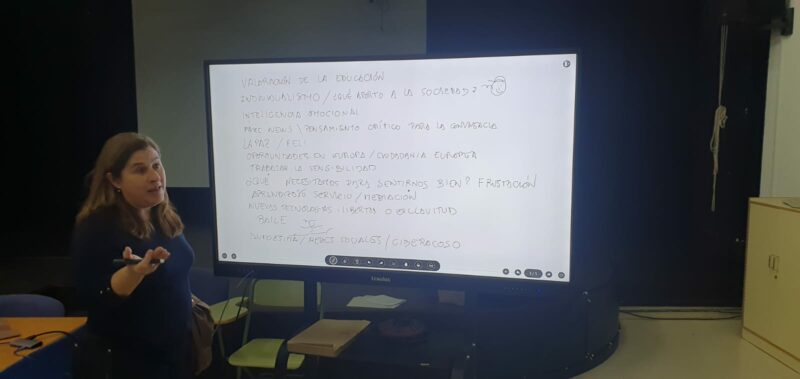 VALORACIÓN DE LA EDUCACIÓN
INDIVIDUALISMO / ¿QUÉ APORTO A LA SOCIEDAD?
INTELIGENCIA EMOCIONAL
FAKE NEWS \ PENSAMIENTO CRÍTICO PARA LA CONVIVENCIA
LA PAZ /
OPORTUNIDADES EN EUROPA / CIUDADANIA EUROPEA
TRABAJAR LA SENSIBILIDAD
¿QUÉ NECESITAMOS PARA SENTIRNOS BIEN? FRUSTRACIÓN
APRENDIZAJE SERVICIO / MEDIACIÓN
NUEVAS TECNOLOGIAS: LIBERTAD O ESCLAVITUD
BAILE
/ REDES SOCIALES / CIBERACOSO
1/1